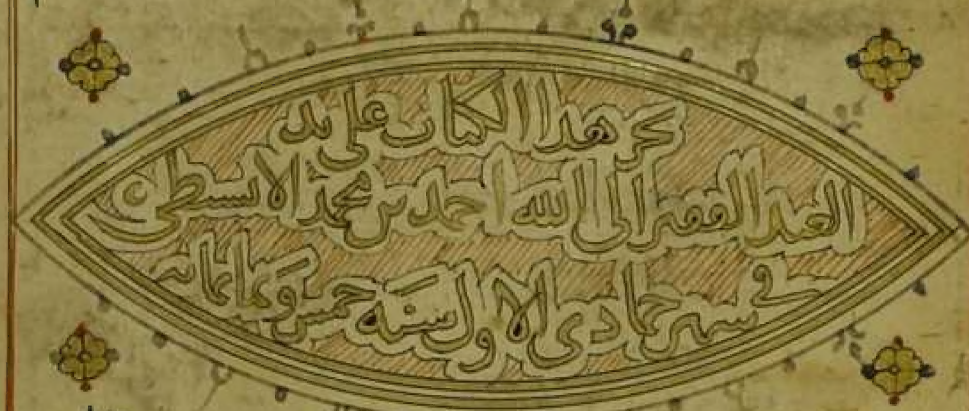 نجز هذا الكتاب على يد
العبد الفقير الى الله احمد بن محمد
في شهر جمادى الاول سنة خمس وثمانمائة